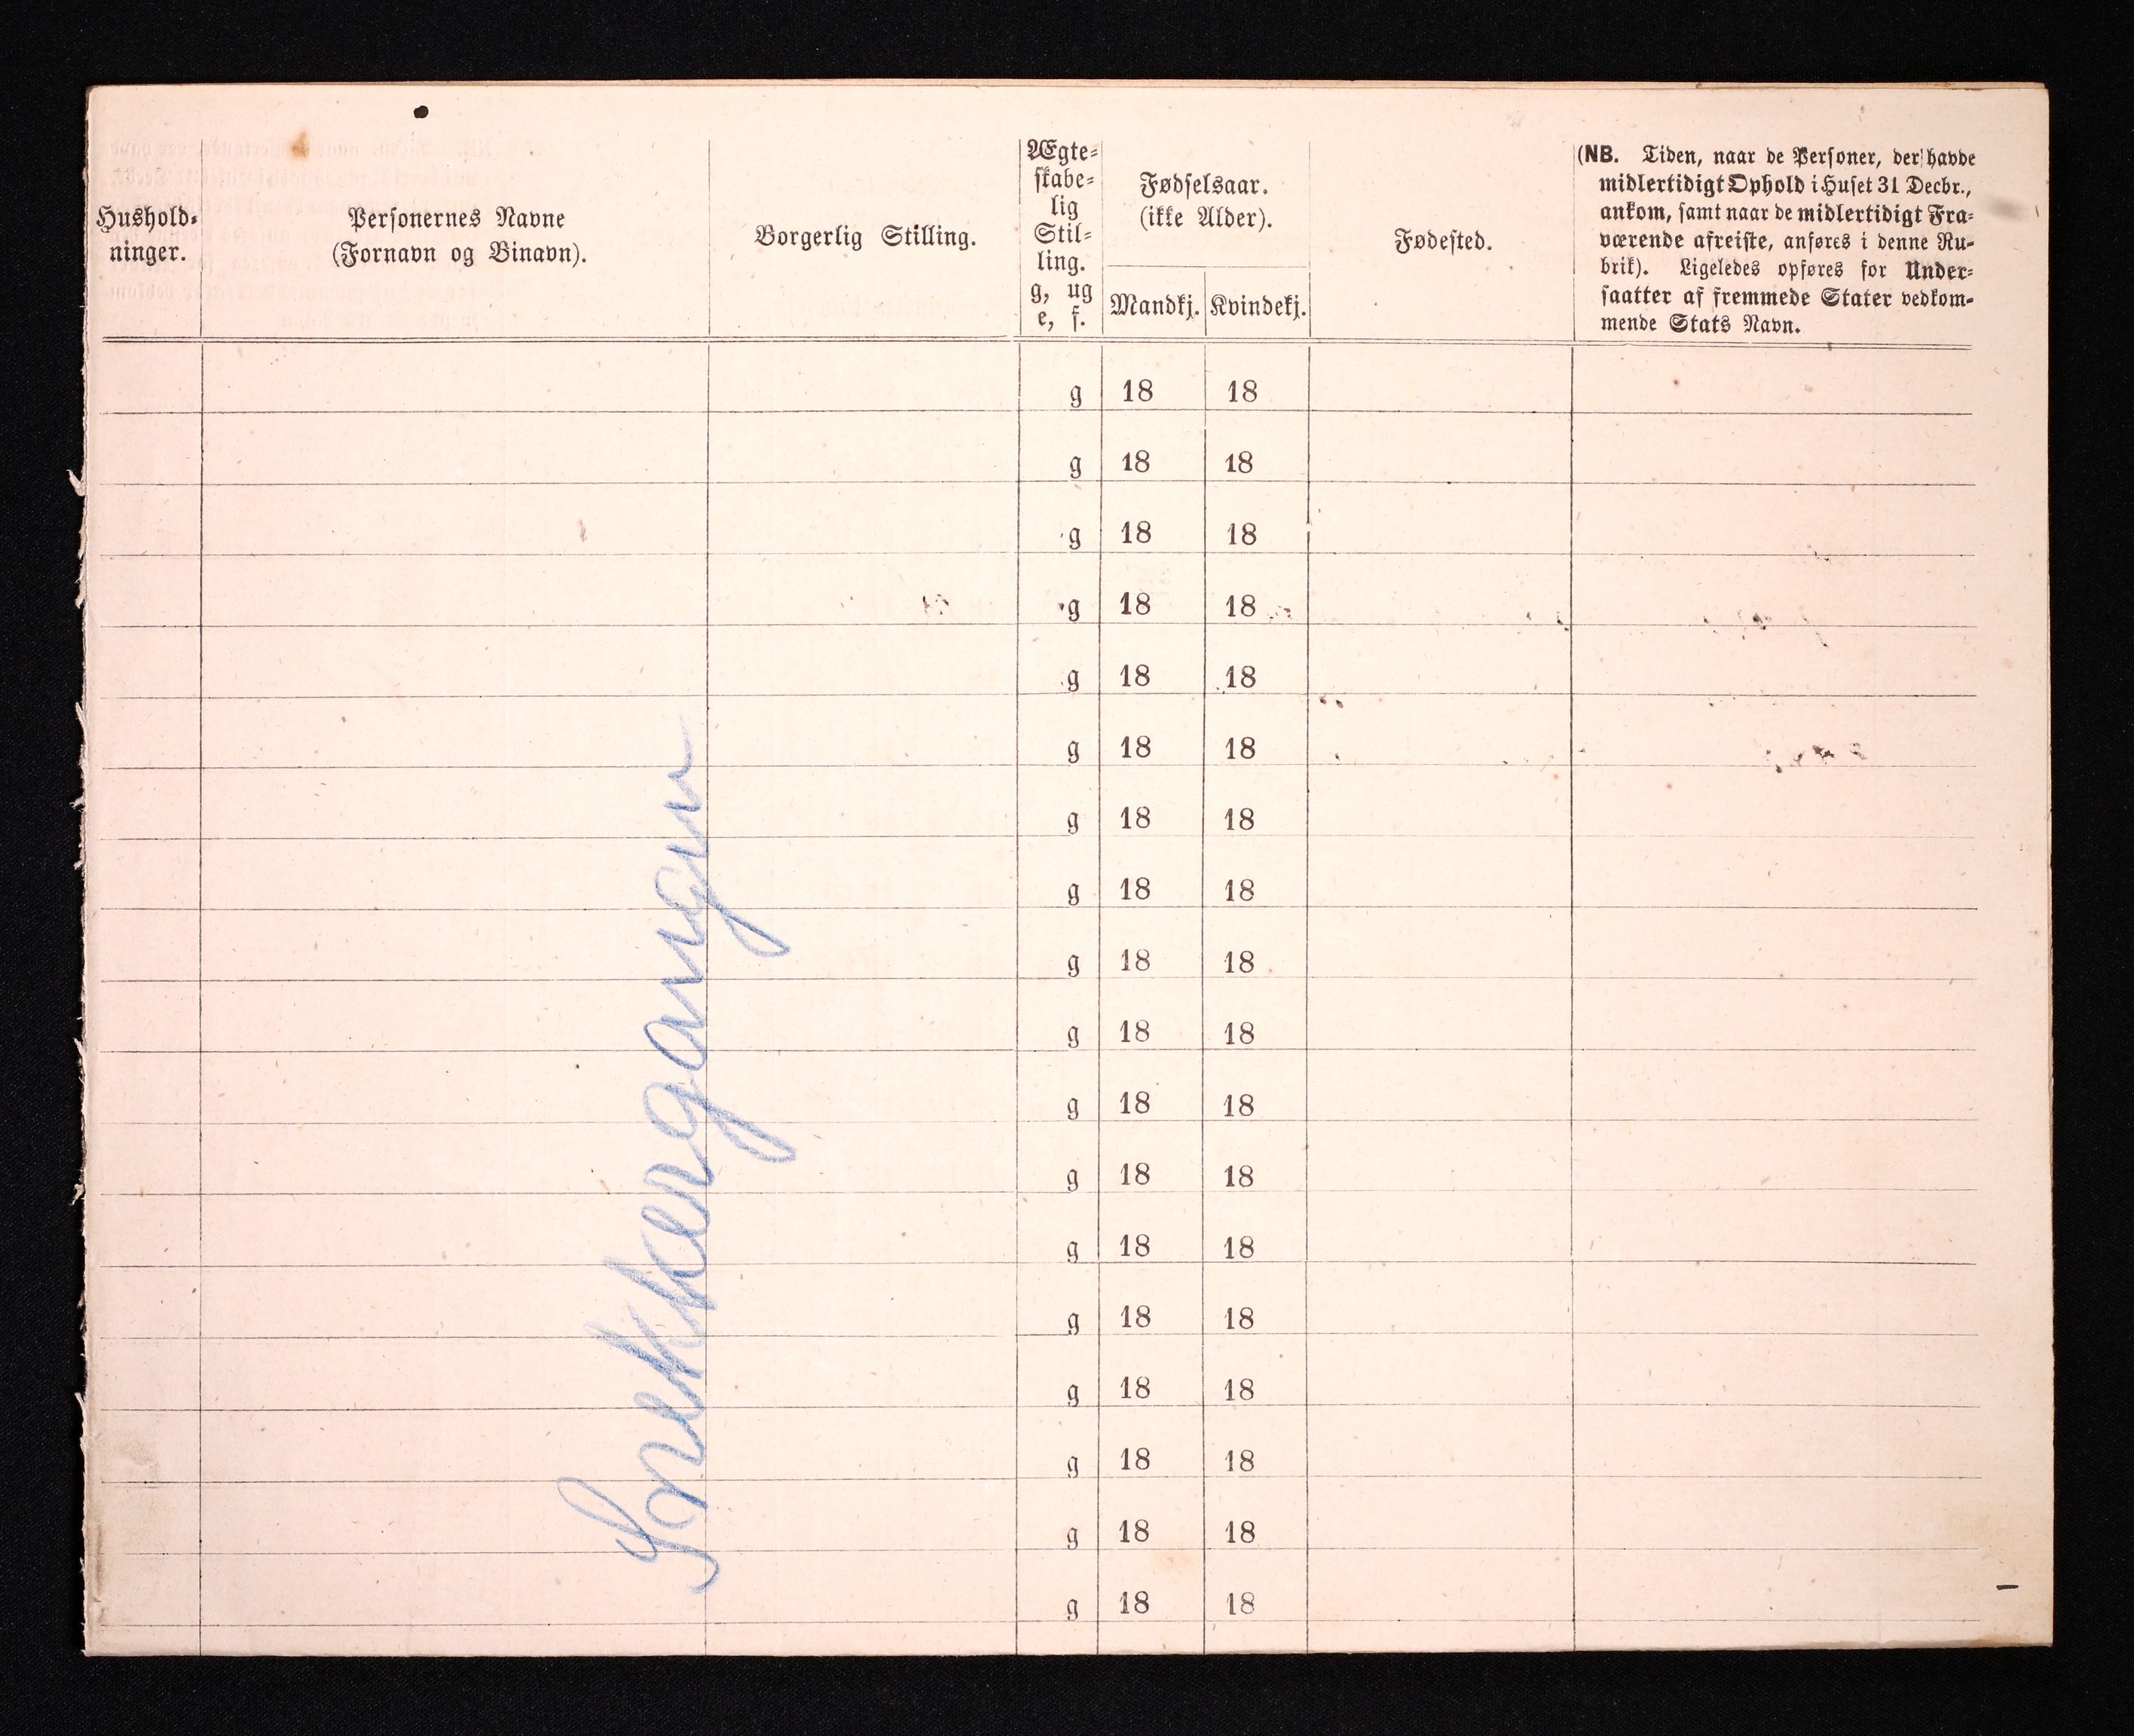 Hushold-
ninger.
Personernes Navne
(Fornavn og Binavn).
Borgerlig Stilling.
Ægte-
skabe-
lig
Stil-
ling.
g, ug
e, s.
Fødselsaar.
(ikke Alder).
Mandkj. Kvindekj.
Fødested.
(NB. Tiden, naar de Personer, der havde
midlertidigt Ophold i Huset 31 Decbr.,
ankom, samt naar de midlertidigt Fra-
værende afreiste, anføres i denne Ru-
brik). Ligeledes opføres for Under-
saatter af fremmede Stater vedkom-
mende Stats Navn.
g 18 18
g 18 18
g 18 18
g 18 18
g 18 18
g 18 18
g 18 18
g 18 18
g 18 18
g 18 18
g 18 18
g 18 18
g 18 18
g 18 18
g 18 18
g 18 18
g 18 18
g 18 18
Smekkergangen